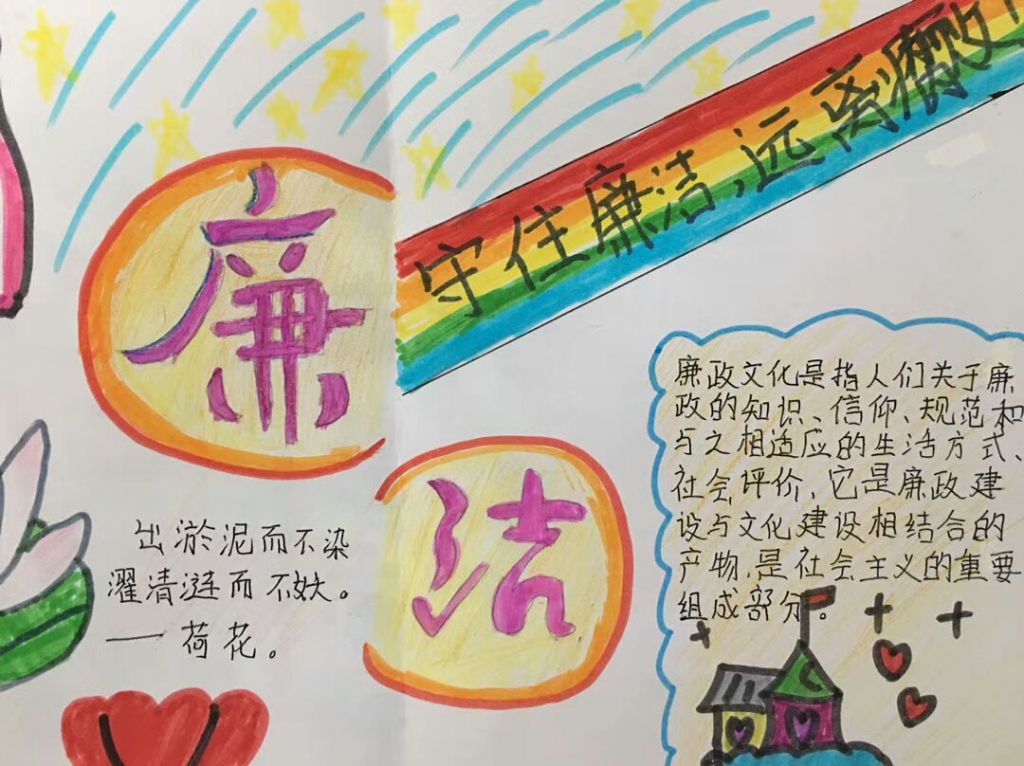 守住廉洁，远离腐败
廉
洁
出淤泥而不染
濯清涟而不妖。
——荷花。
廉政文化是指人们关于廉
政的知识、信仰、规范和
与之相适应的生活方式、
社会评价，它是廉政建
设与文化建设相结合的
产物，是社会主义的重要
组成部分。